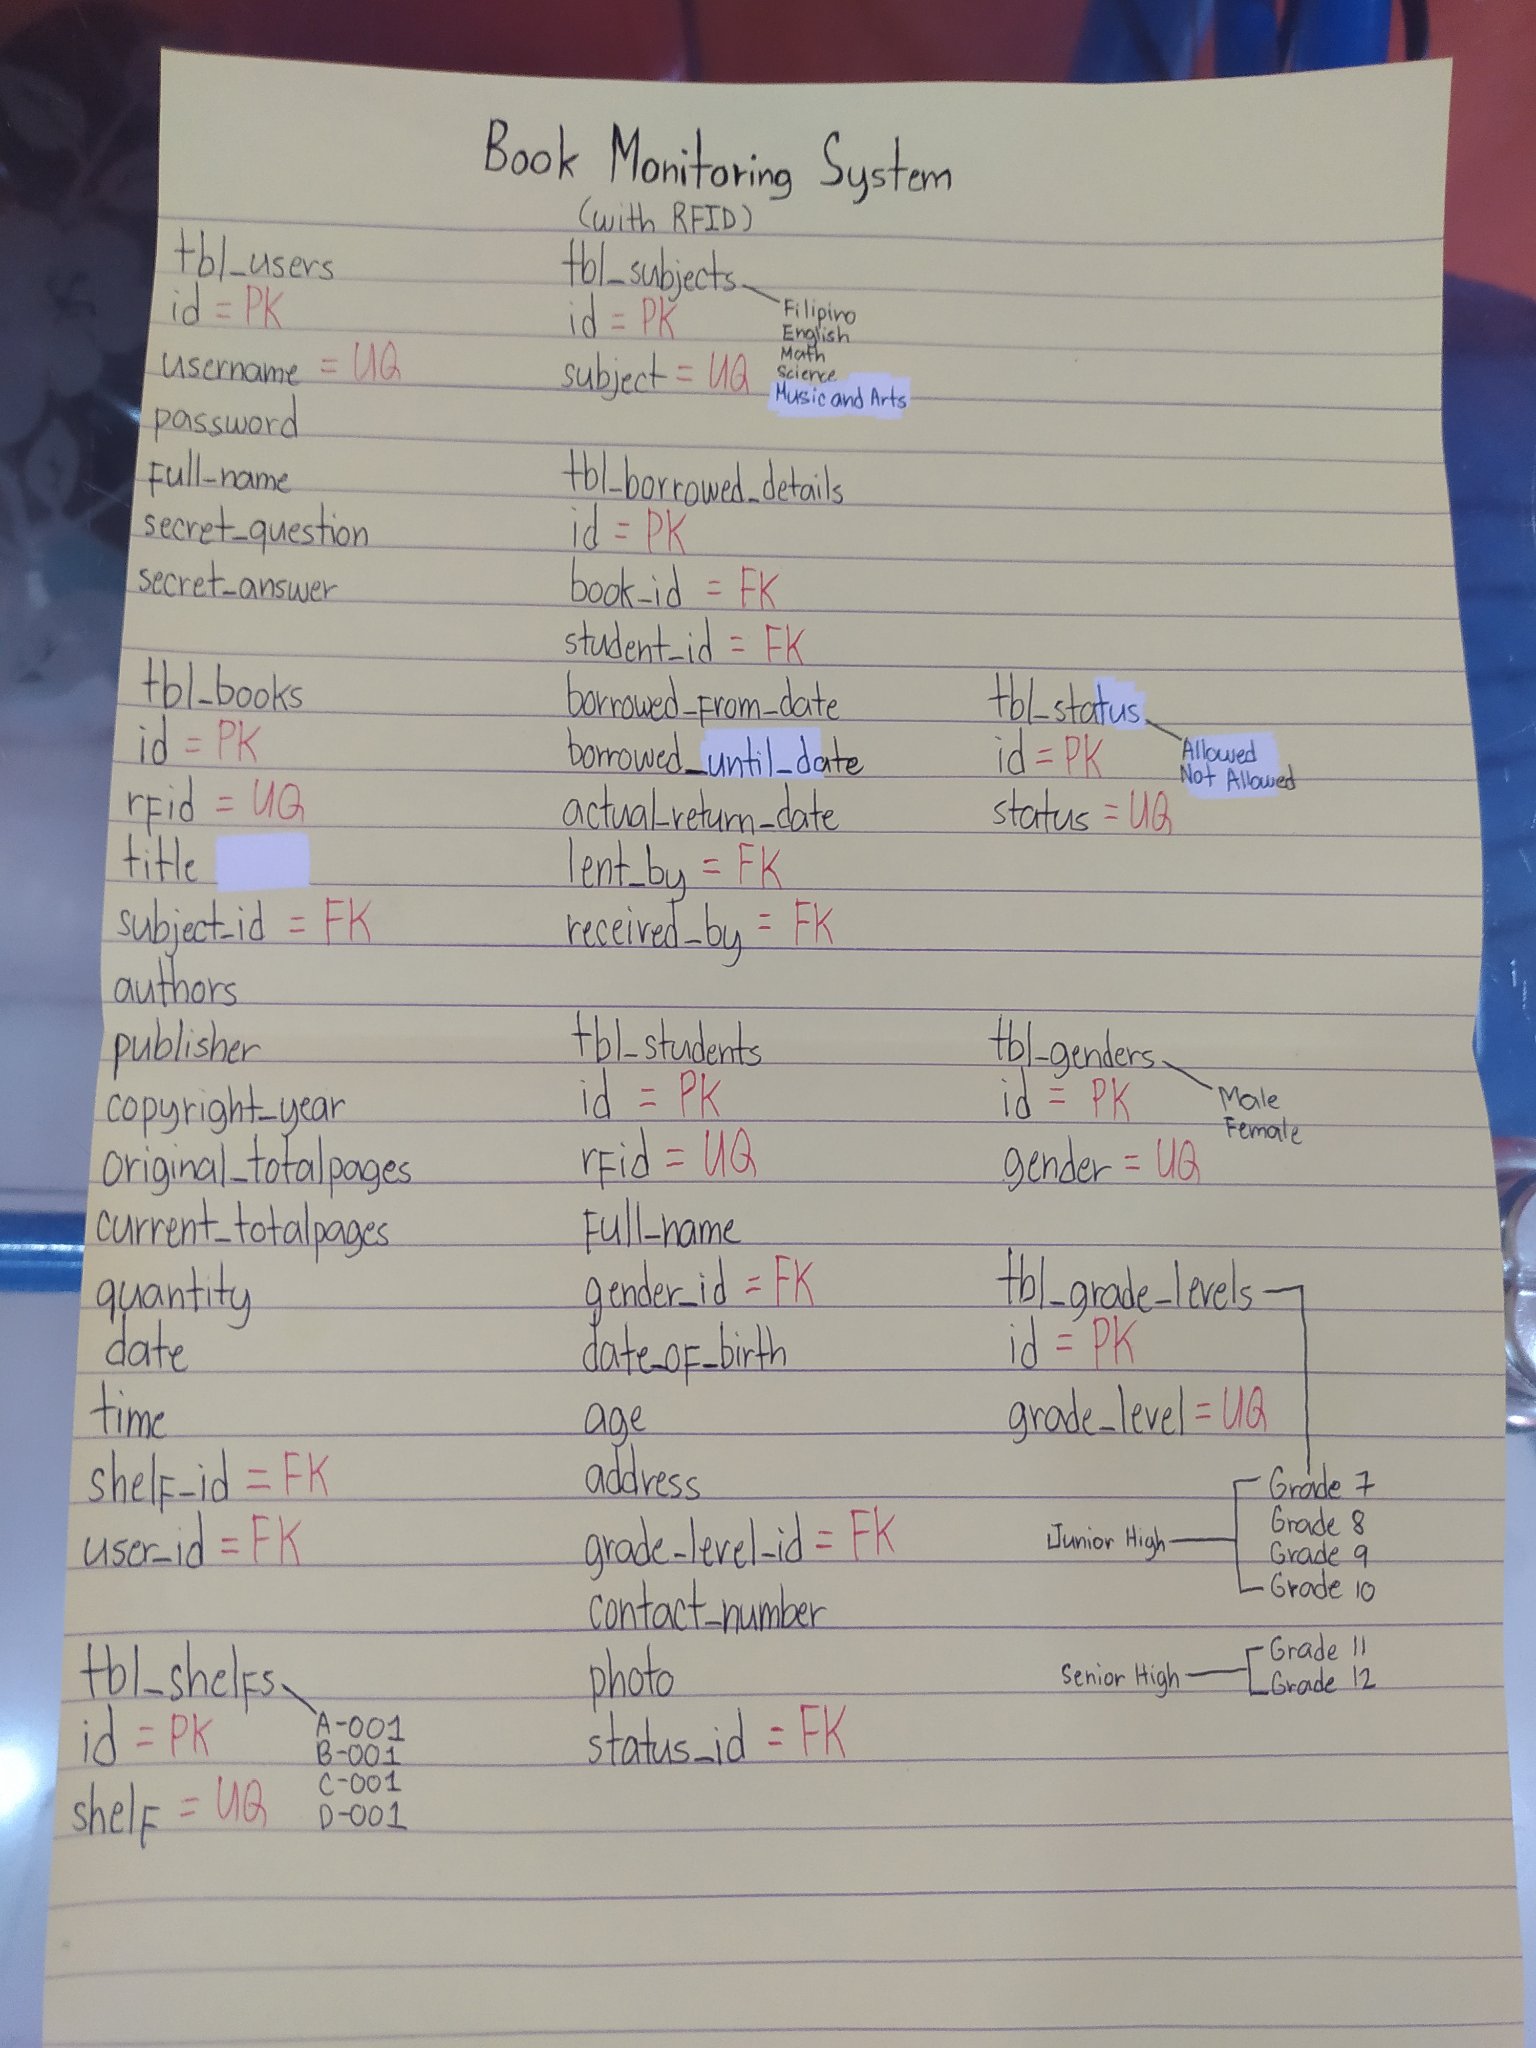 Book Monitoring System
(with RFID)
tbl_users
id = PK
username = UQ
password
full_name
secret_question
secret_answer
tbl_books
id = PK
rfid = UQ
title
subject_id = FK
authors
publisher
copyright_year
original_totalpages
current_totalpages
quantity
date
time
shelf_id = FK
user_id = FK
tbl_shelfs
id = PK
shelf = UQ
A-001
B-001
C-001
D-001
tbl_subjects
id = PK
subject = UQ
Filipino
English
Math
Science
Music and Arts
tbl_borrowed_details
id = PK
book_id = FK
student_id = FK
borrowed_from_date
borrowed_until_date
actual_return_date
lent_by = FK
received_by = FK
tbl_students
id = PK
rfid = UQ
full_name
gender_id = FK
date_of_birth
age
address
grade_level_id = FK
contact_number
photo
status_id = FK
tbl_status
id = PK
status = UQ
Allowed
Not Allowed
tbl_genders
id = PK
gender = UQ
Male
Female
tbl_grade_levels
id = PK
grade_level = UQ
Junior High
Grade 7
Grade 8
Grade 9
Grade 10
Senior High
Grade 11
Grade 12